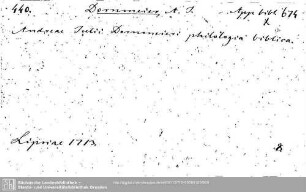 440. Dornmeier, A. J. App. bibl 674
Andreae Julii Dornmeieri philologia biblica.
Lipsiae 1713
8.
Sächsische Landesbibliothek -
Staats- und Universitätsbibliothek Dresden